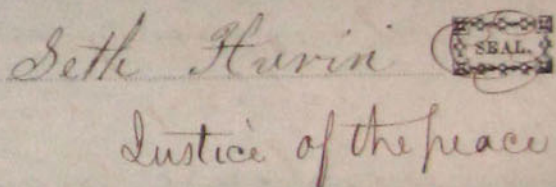 Seth Hurin SEAL.
Justice of the peace